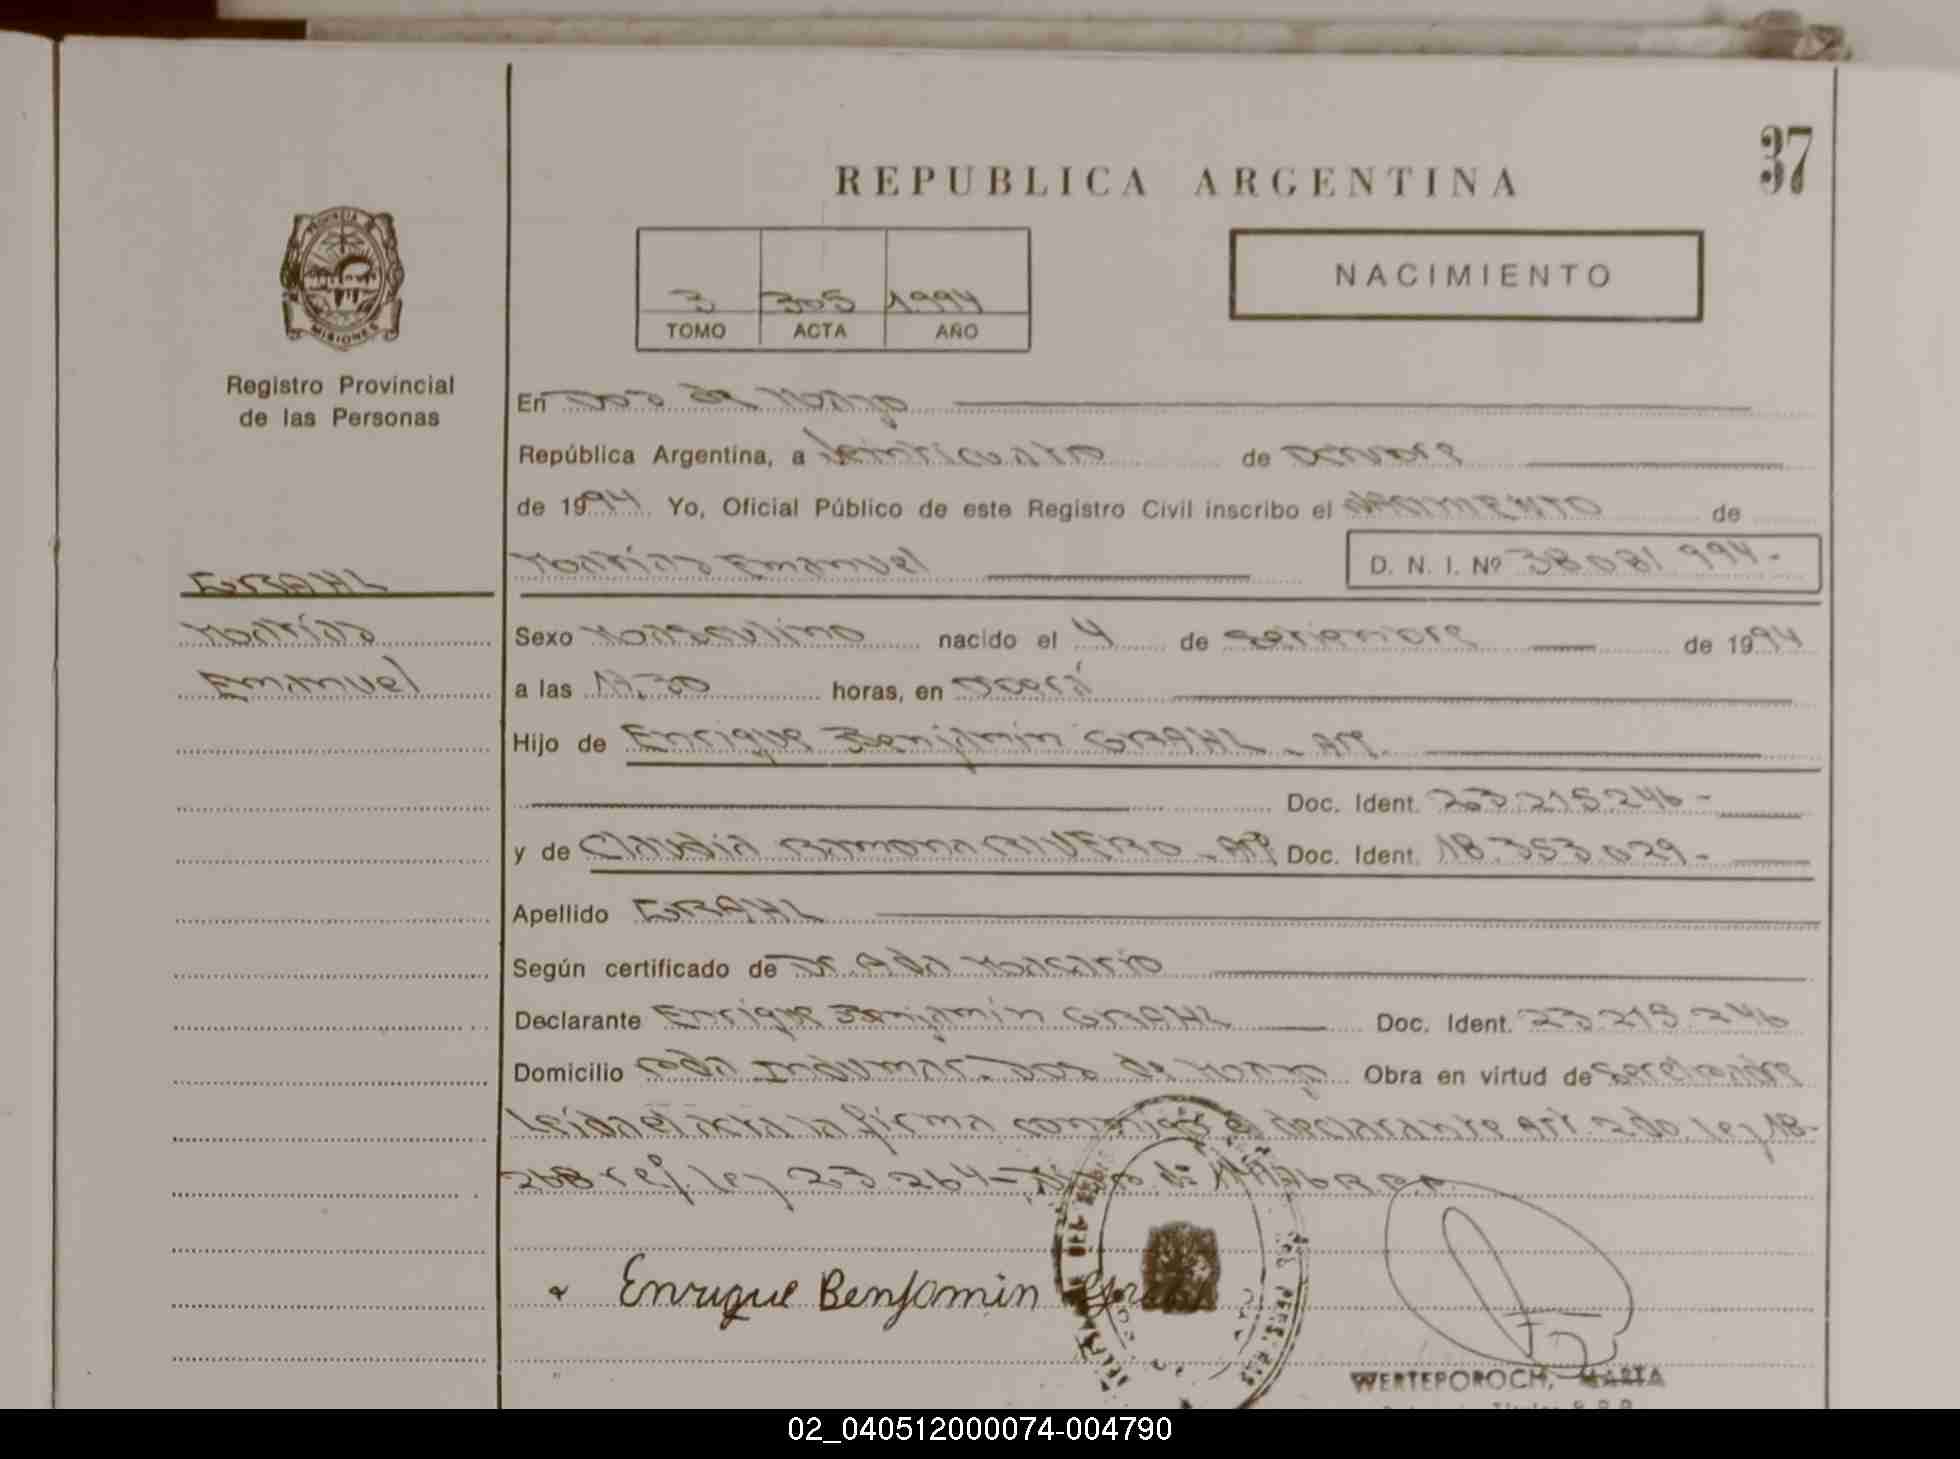 37
REPUBLICA ARGENTINA
PROVINCIA DE
MISIONES
NACIMIENTO
3 305 1994
TOMO ACTA AÑO
Registro Provincial
de las Personas
En Dos de Mayo
República Argentina, a de Octubre
de 1994 Yo, Oficial Público de este Registro Civil inscribo el nacimiento de
Matías Emanuel D. N. I. Nº 38 081 994-
GRAHL
Matías
Emanuel
Sexo Masculino nacido el 4 de Setiembre de 1994
a las horas, en Oberá
Hijo de Enrique Benjamin GRAHL - Arg.
Doc. Ident. 23.215.246-
y de Claudia Ramona RIVERO - Arg Doc. Ident. 18.353.029-
Apellido GRAHL
Según certificado de Dr. Ada Macario
Declarante Enrique Benjamin GRAHL Doc. Ident. 23.215.246
Domicilio Dos de Mayo Obra en virtud de
Leída el acta la firma conmigo el declarante Art. 2do. Ley 18-
248 ref. ley 23.264-
Enrique Benjamin Grahl
WERTEPOROCH, MARTA
02_040512000074-004790